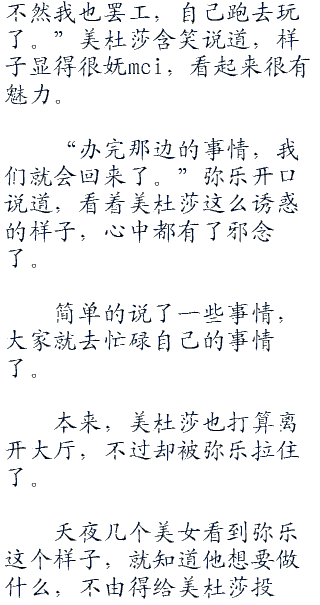 不然我也罢工，自己跑去玩
了。”美杜莎含笑说道，样
子显得很妩mci，看起来很有
魅力。
“办完那边的事情，我
们就会回来了。”弥乐开口
说道，看着美杜莎这么诱惑
的样子，心中都有了邪念
了。
简单的说了一些事情，
大家就去忙碌自己的事情
了。
本来，美杜莎也打算离
开大厅，不过却被弥乐拉住
了。
天夜几个美女看到弥乐
这个样子，就知道他想要做
什么，不由得给美杜莎投